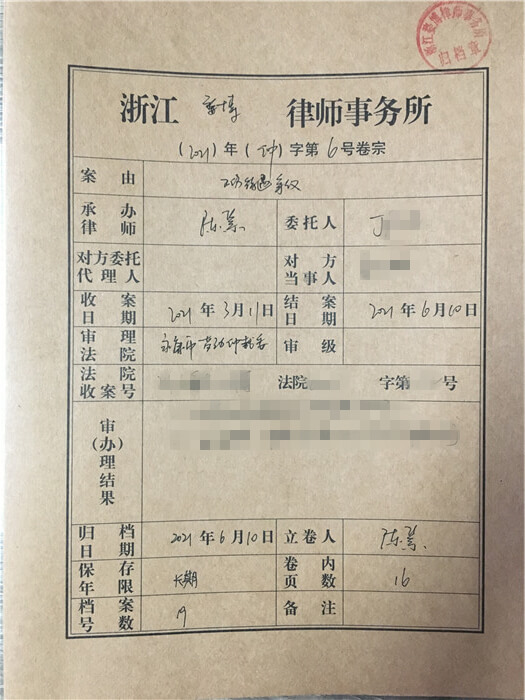 归档章
浙江 律师事务所
(2021)年(仲)字第6号卷宗
案由 工伤待遇争议
承办律师 陈 委托人 丁
对方委托代理人 对方当事人
收案日期 2021年3月11日 结案日期 2021年6月10日
审理法院 永康市劳动仲裁委 审级
法院收案号 法院 字第 号
审(办)理结果
归档日期 2021年6月10日 立卷人 陈
保存年限 长期 卷内页数 16
档案号数 19 备注